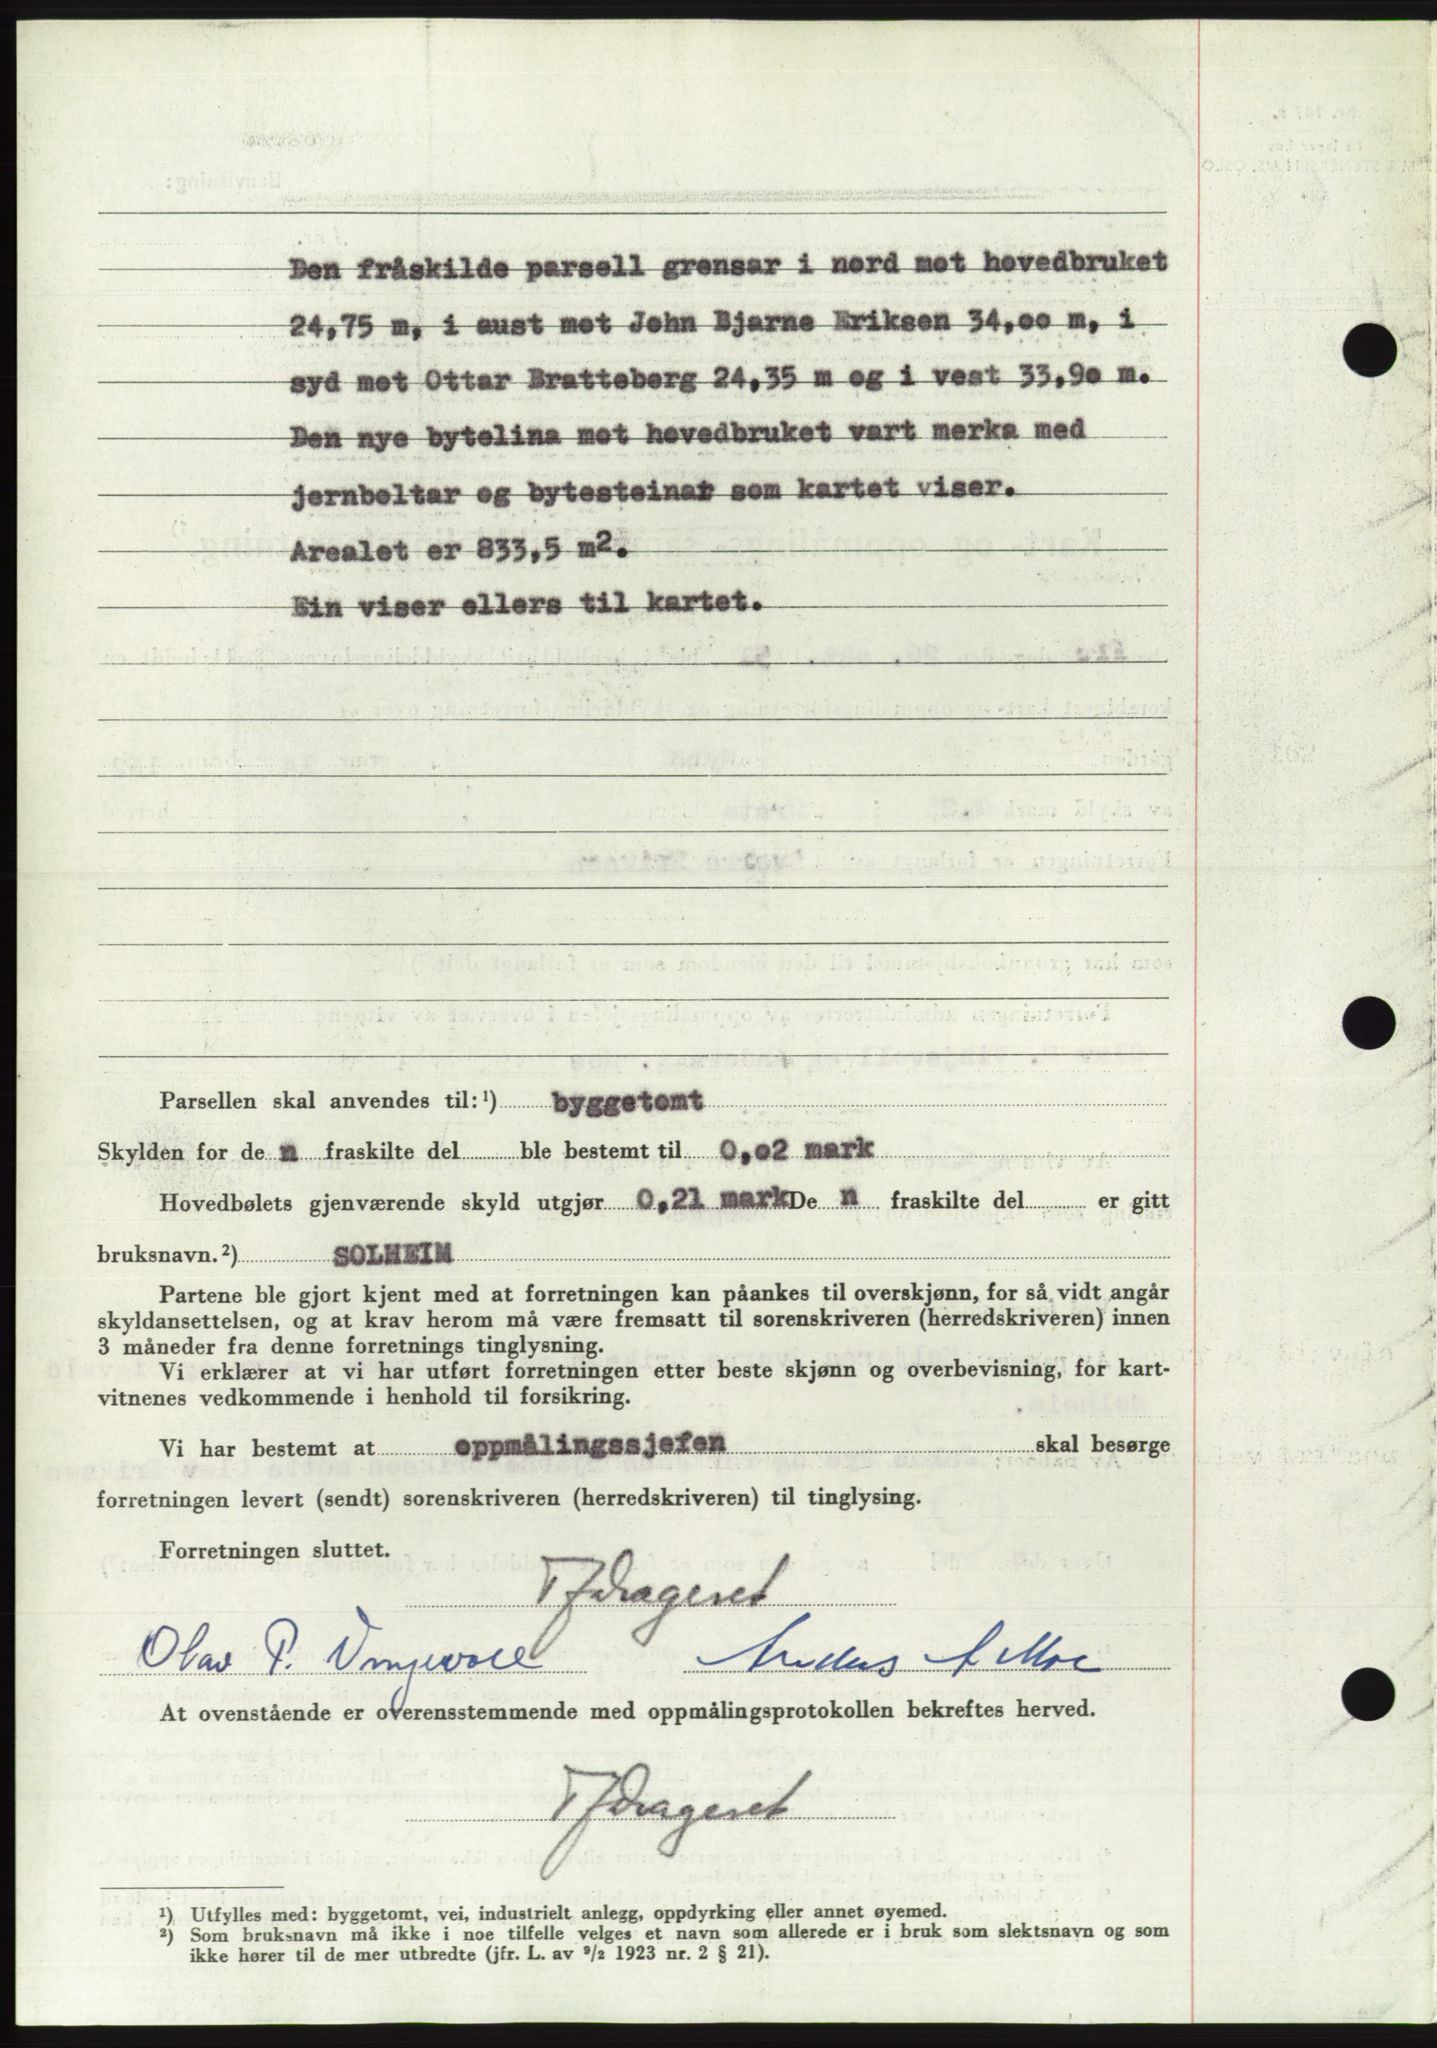 Den fråskilde parsell grensar i nord mot hovedbruket
24,75 m, i aust mot John Bjarne Eriksen 34,oo m, i
syd mot Ottar Bratteberg 24,35 m og i vest 33,9o m.
Den nye bytelina mot hovedbruket vart merka med
jernboltar og bytesteinar som kartet viser.
Arealet er 833,5 m².
Ein viser ellers til kartet.
Parsellen skal anvendes til:¹) byggetomt
Skylden for de n fraskilte del ble bestemt til 0,o2 mark
Hovedbølets gjenværende skyld utgjør 0,21 mark De n fraskilte del er gitt
bruksnavn.²) SOLHEIM
Partene ble gjort kjent med at forretningen kan påankes til overskjønn, for så vidt angår
skyldansettelsen, og at krav herom må være fremsatt til sorenskriveren (herredskriveren) innen
3 måneder fra denne forretnings tinglysning.
Vi erklærer at vi har utført forretningen etter beste skjønn og overbevisning, for kart-
vitnenes vedkommende i henhold til forsikring.
Vi har bestemt at oppmålingssjefen skal besørge
forretningen levert (sendt) sorenskriveren (herredskriveren) til tinglysing.
Forretningen sluttet.
T Drageset
Olav P. Vinjevoll Anders A Moe
At ovenstående er overensstemmende med oppmålingsprotokollen bekreftes herved.
T Drageset
¹) Utfylles med: byggetomt, vei, industrielt anlegg, oppdyrking eller annet øyemed.
²) Som bruksnavn må ikke i noe tilfelle velges et navn som allerede er i bruk som slektsnavn og som
ikke hører til de mer utbredte (jfr. L. av ⁹/₂ 1923 nr. 2 § 21).